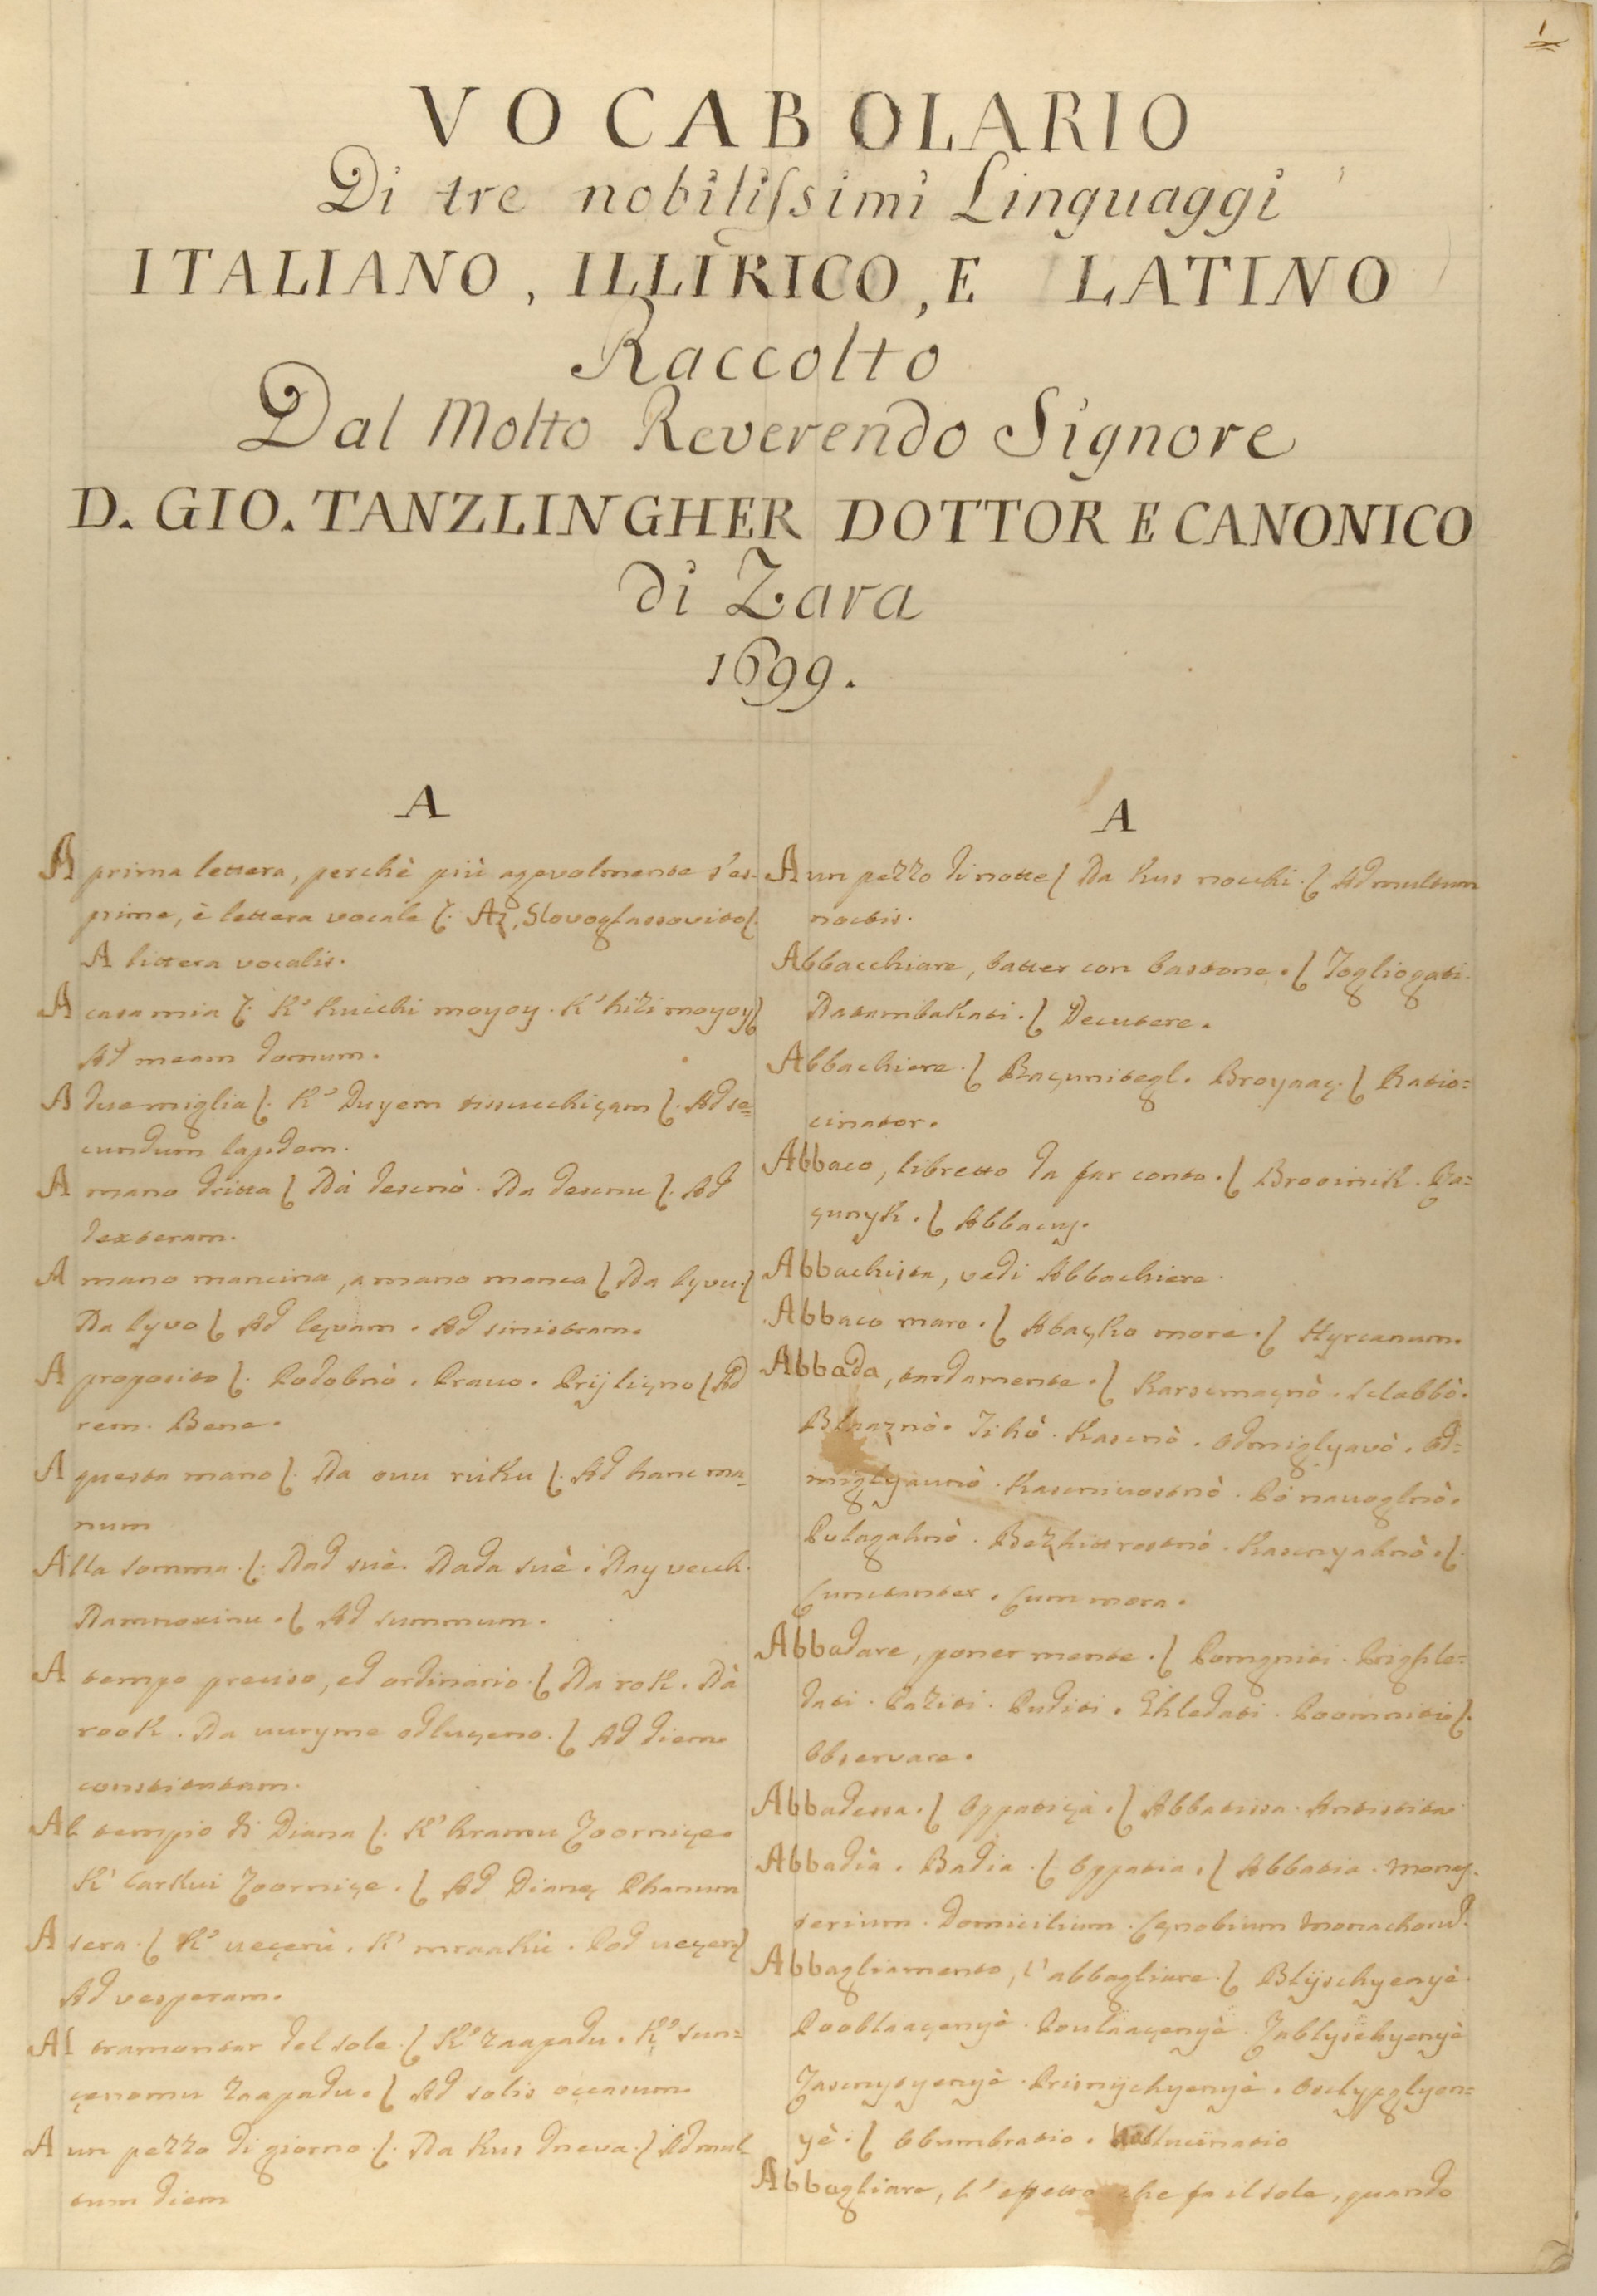 1
VOCABOLARIO
Di tre nobiliſsimi Linguaggi
ITALIANO, ILLIRICO, E LATINO
Raccolto
Dal Molto Reverendo Signore
D. GIO. TANZLINGHER DOTTOR E CANONICO
di Zara
1699.
A
A prima lettera, perchè più agevolmente s'es-
prime, è lettera vocale {. Az, Slovoglassovito {.
A littera vocalis.
A casa mia {. K' kucchi moyoy. K' hizi moyoy {
Ad meam domum.
A due miglia {. K' Duyem tissucchiçam {. Ad se=
cundum lapidem.
A mano dritta { Nà desnò. Na desnu {. Ad
dexteram.
A mano mancina, a mano manca { Na lyvu. {
Na lyvo { Ad lęvam. Ad sinistram.
A proposito {. Podobnò. Pravo. Prijliçno { Ad
rem. Bene.
A questa mano {. Na ovu rúku {. Ad hanc ma-
num
Alla somma. {. Nad svè. Nada svè. Nay vech.
{ Ad summum.
A tempo preciso, ed ordinario. { Na rok. Nà
rook. Na uuryme odluçeno. { Ad diem
constitutam.
Al tempio di Diana {. K' hramu
K' Carkvi { Ad Dianę Phanum
A sera. { K' veçerù. K' mraakù. Pod veçer {
Ad vesperam.
Al tramontar del sole. { K' zaapadu. K' sun=
çenomu zaapadu. { Ad solis occasum.
A un pezzo di giorno. {. Na kus dneva. { Ad mul-
tum diem
A
A un pezzo di notte { Na kus nocchi. { Ad multum
noctis.
Abbacchiare, batter con bastone. {
Natambakati. { Decutere.
Abbachiere. { Broyaaç. { Ratio=
cinator.
Abbaco, libretto da far conto. { Brooinik. Ra=
çunyk. { Abbacus.
Abbachista, vedi Abbachiere.
Abbaco mare. { Abaçko more. { Hyrcanum.
Abbada, tardamente. {
Blaaznò. Tihò. Kasnò. Od=
Bezhittrostnò. {.
Cunctanter. Cum mora.
Abbadare, poner mente. { Pomgniti. Prighle=
dati. Paziti. Puditi. Ghledati. Poomniti {.
Observare.
Abbadessa. { Oppatiçà. { Abbatissa. Antistita
Abbadia. Badia. { Oppatia. { Abbatia. Monas.
terium. Domicilium. Cęnobium monachorum.
Abbagliamento, l'abbagliare. { Blijschyenyè.
yè. { Obumbratio.
Abbagliare, l'effetto che fa il sole, quando